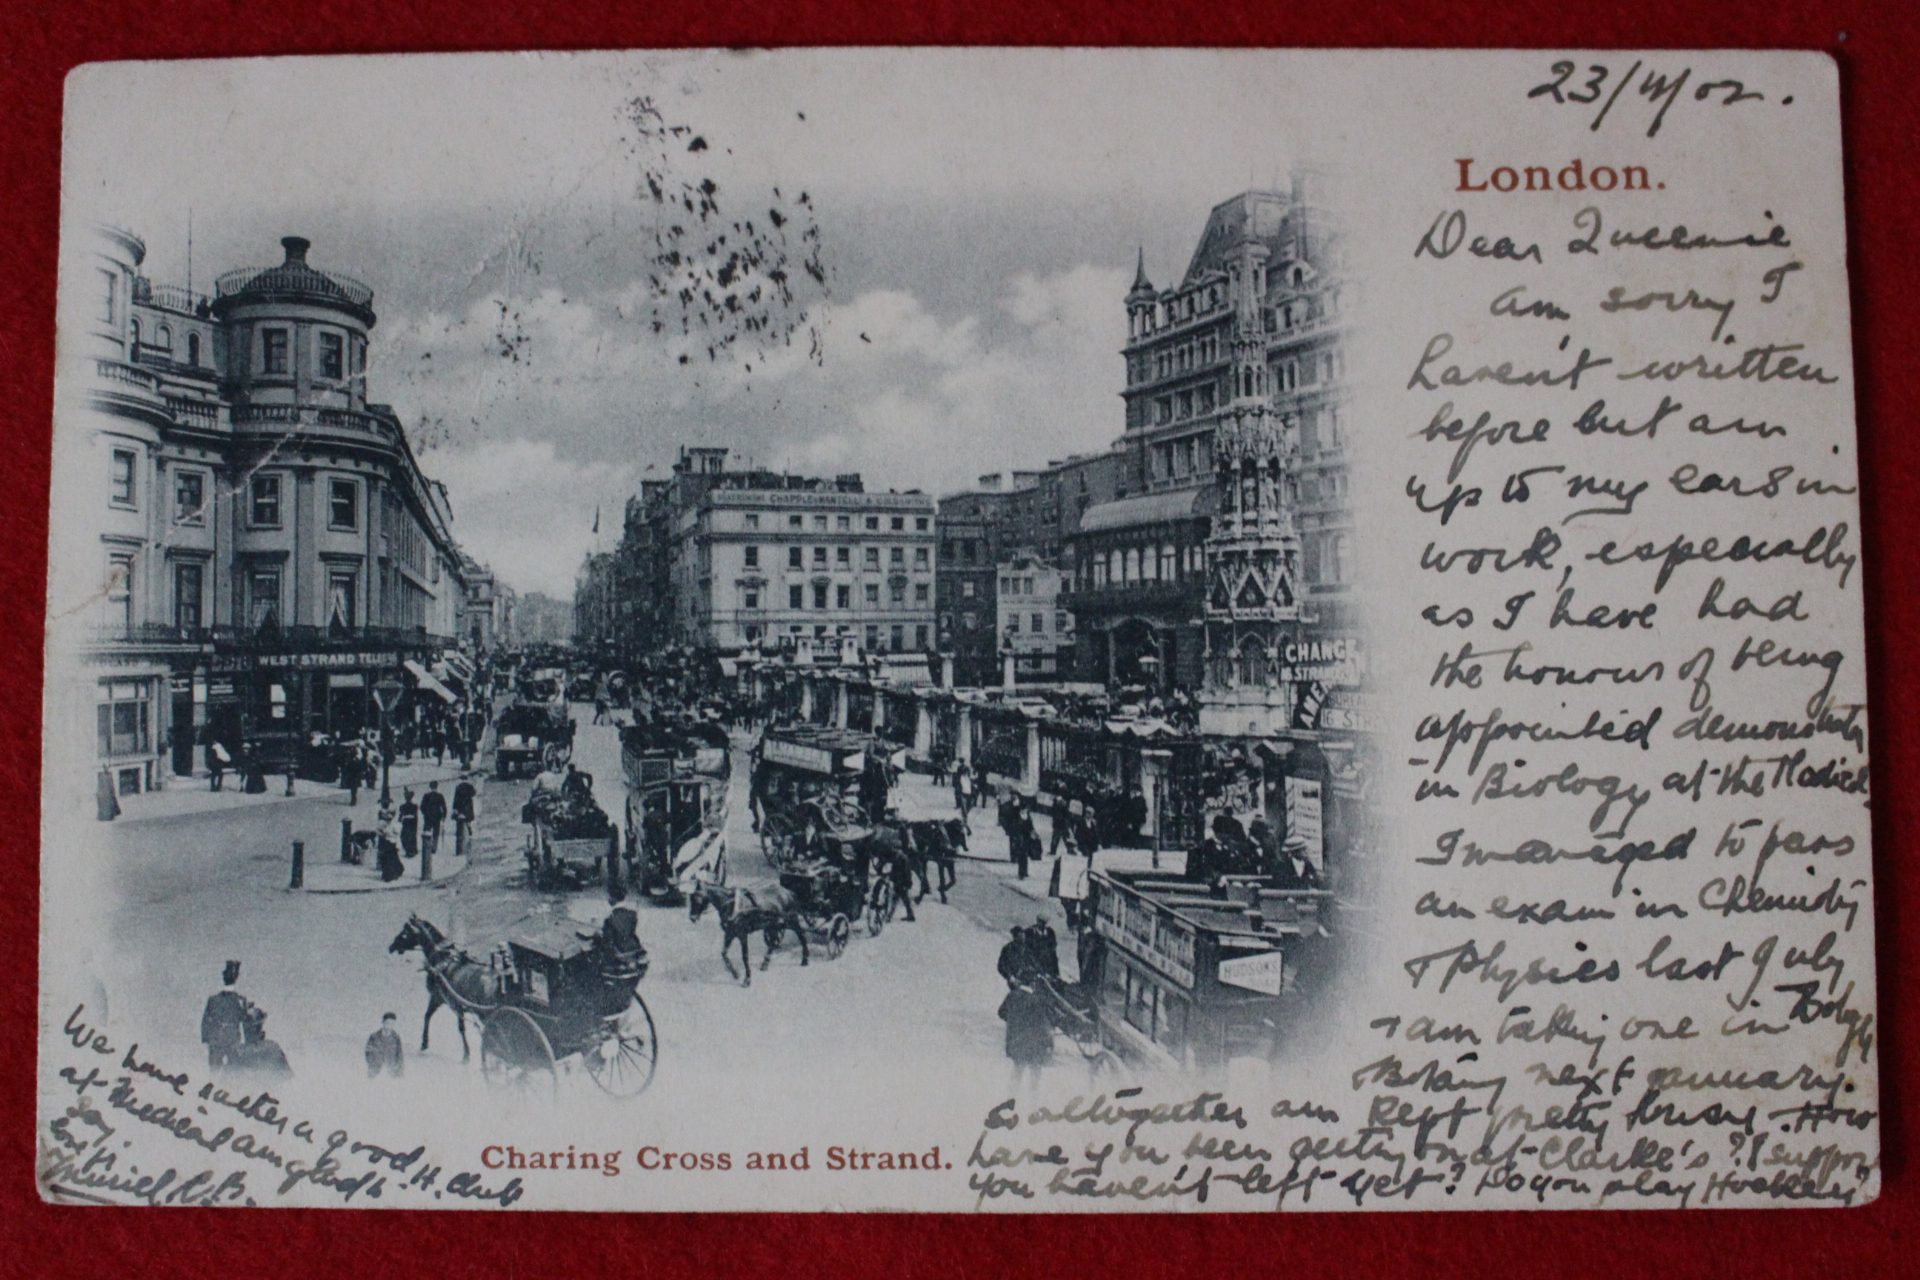 23/4/02.
London.
Dear Queenie
am sorry I
haven't written
before but am
up to my ears in
work, especially
as I have had
the honour of being
appointed demonstrator
in Biology at the Medical.
I managed to pass
an exam in Chemistry
& Physics last July
& am taking one in
Botany next January.
So altogether am kept pretty busy. How
have you been getting on at Clarke's? I suppose
you haven't left yet? Do you play Hockey?
We have rather a good H. Club
at Medical am glad to
say.
Muriel
Charing Cross and Strand.
CHAPPLE & MANTELL
WEST STRAND TELE
CHANGE
STRAND
HUDSONS